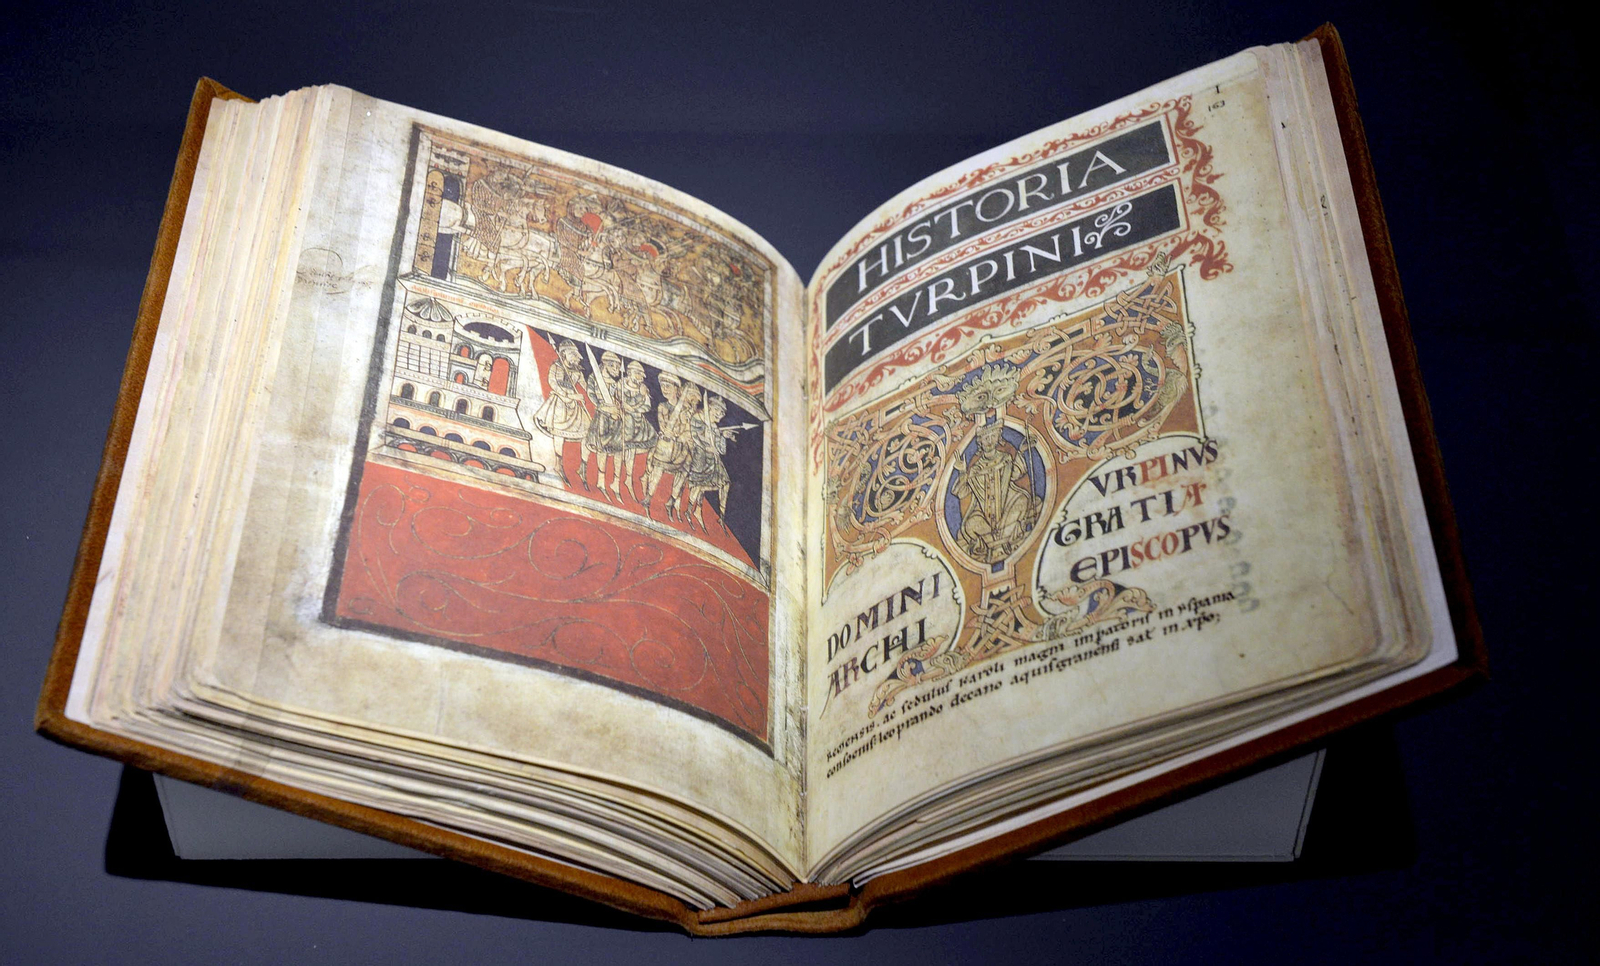 I
163
HISTORIA
TVRPINI
VRPINVS
GRATIA
EPISCOPVS
DOMINI
ARCHI
REMENSIS. ac sedulus Karoli magni imparoris in yspania
consocius. leoprando decano aquisgranensi sat in xpo;